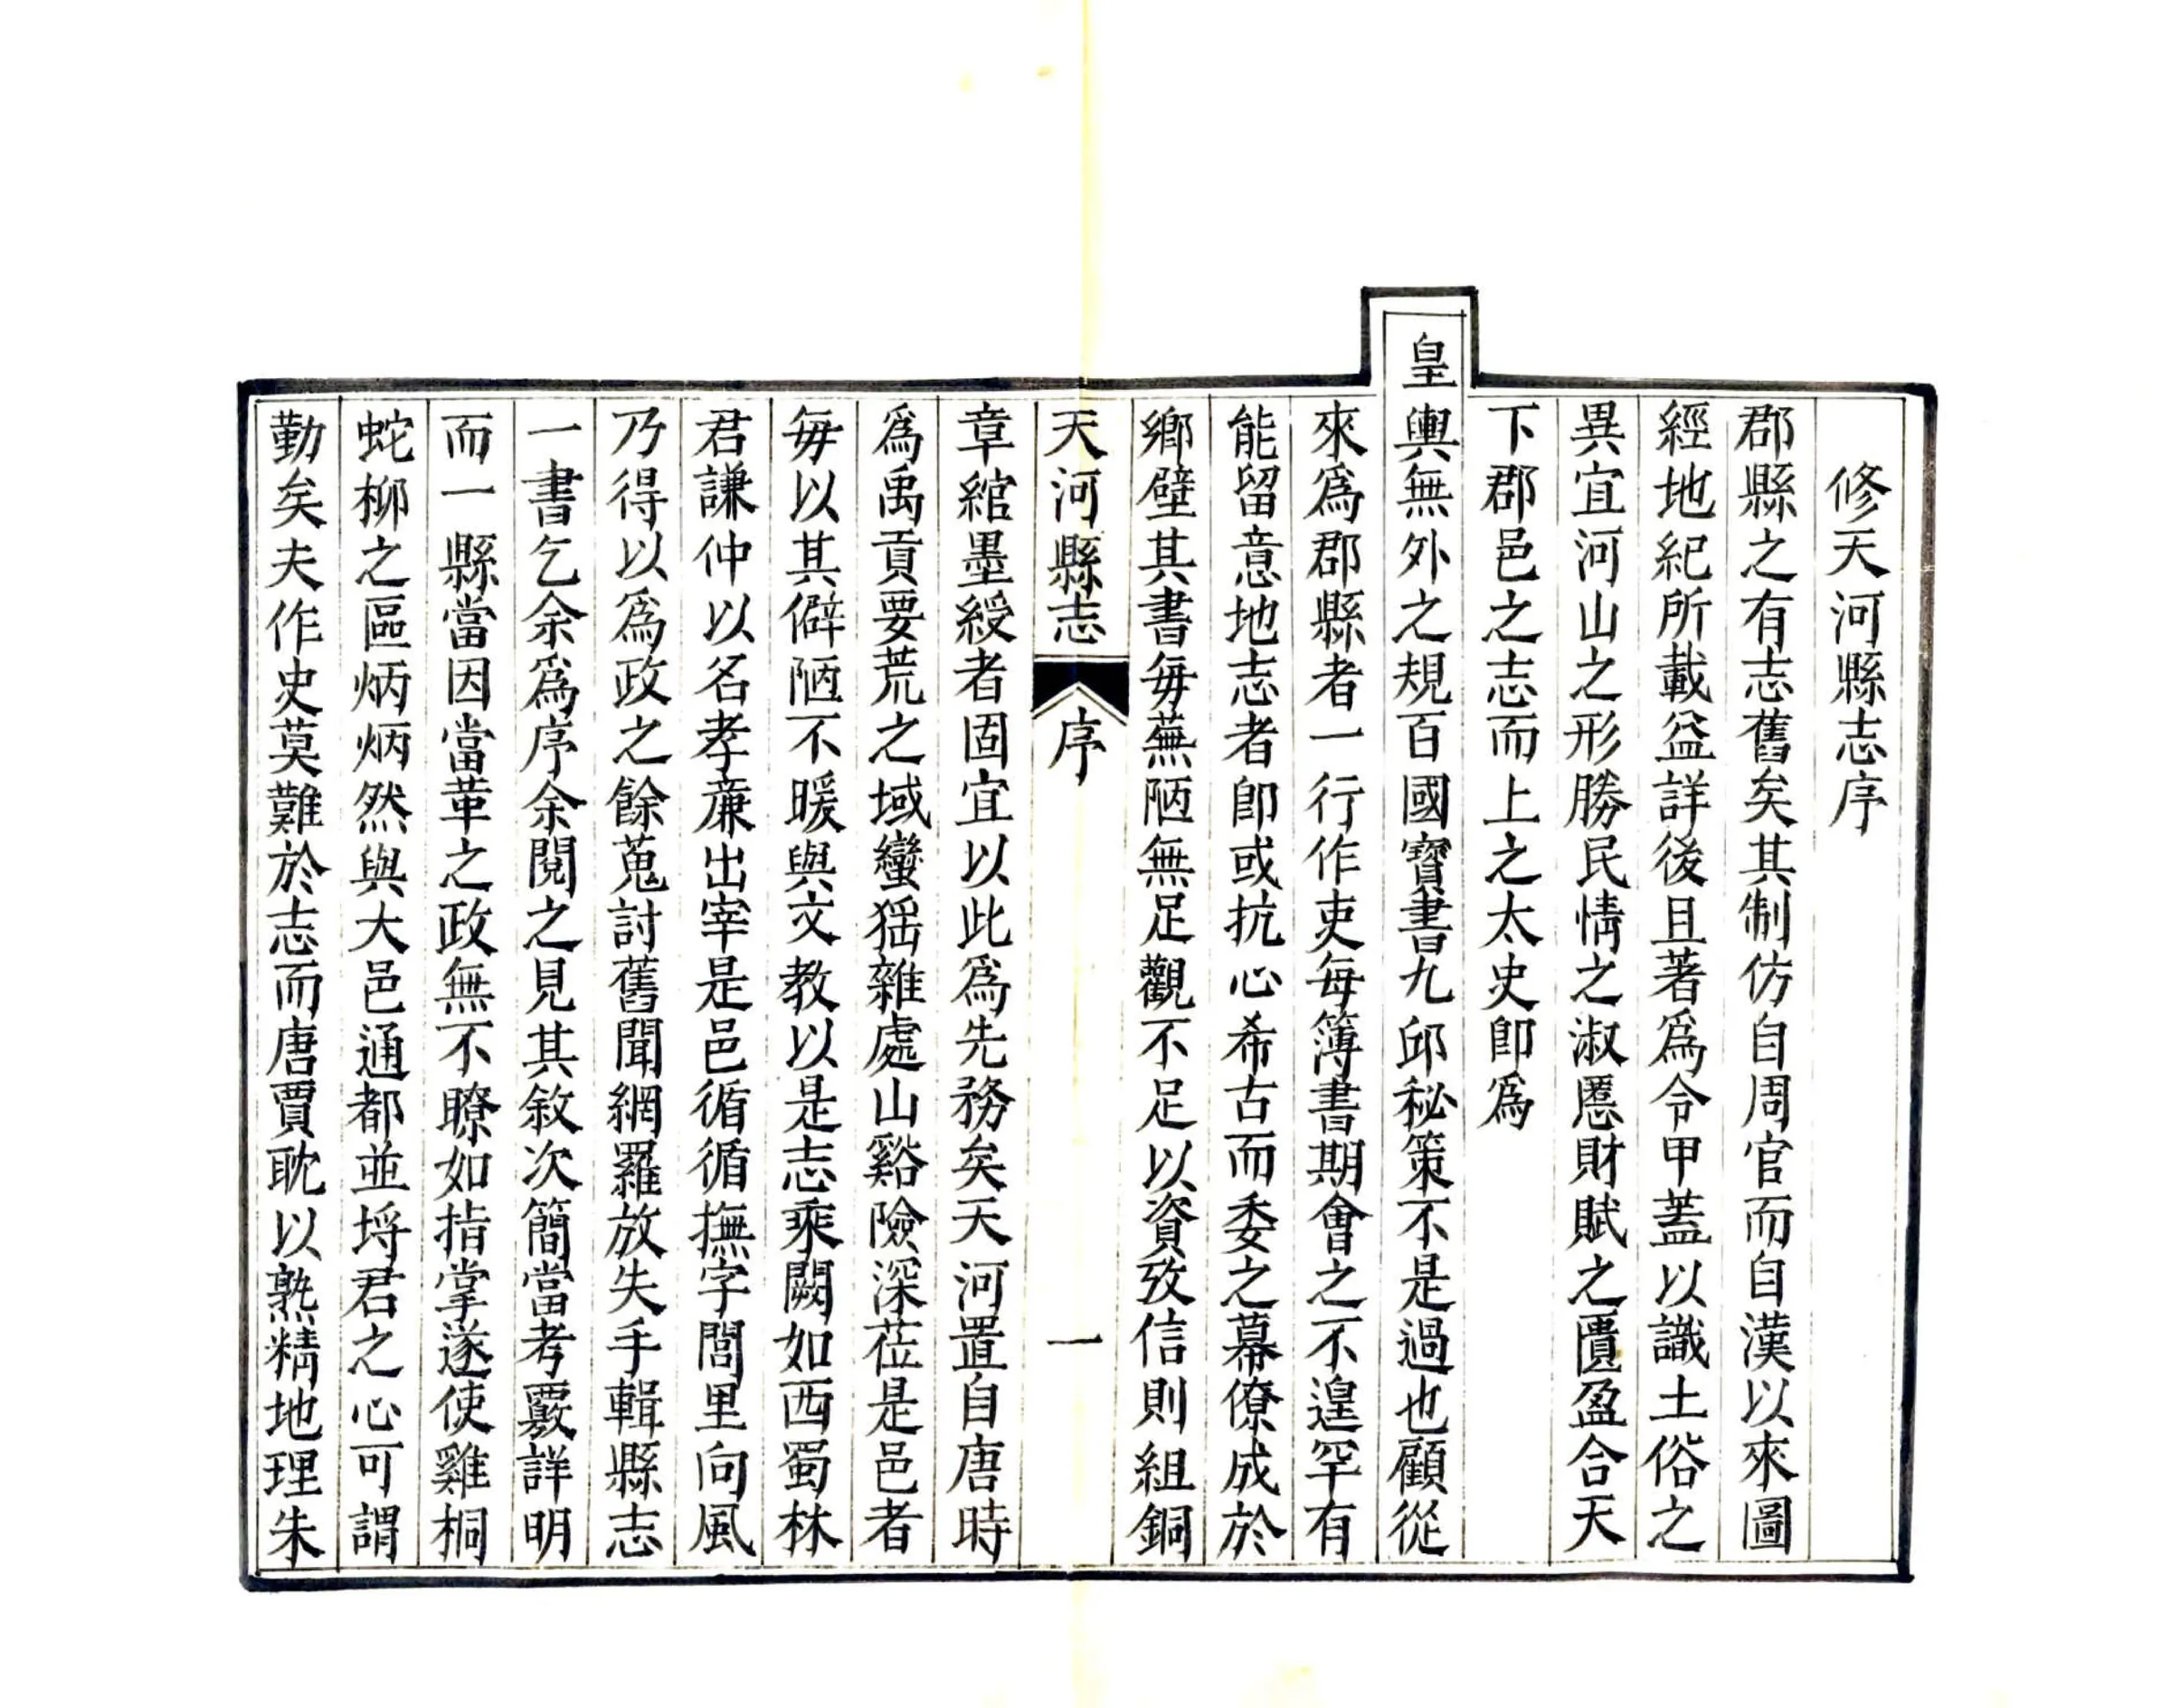 修天河縣志序
郡縣之有志舊矣其制仿自周官而自漢以來圖
經地紀所載益詳後且著爲令甲蓋以識土俗之
異宜河山之形勝民情之淑慝財賦之匱盈合天
下郡邑之志而上之太史卽爲
皇輿無外之規百國寶書九邱秘策不是過也顧從
來爲郡縣者一行作吏每簿書期會之不遑罕有
能留意地志者卽或抗心希古而委之幕僚成於
鄉壁其書每蕪陋無足觀不足以資攷信則組銅
天河縣志 序 一
章綰墨綬者固宜以此爲先務矣天河置自唐時
爲禹貢要荒之域蠻猺雜處山谿險深莅是邑者
每以其僻陋不暖與文教以是志乘闕如西蜀林
君謙仲以名孝亷出宰是邑循循撫字閭里向風
乃得以爲政之餘蒐討舊聞網羅放失手輯縣志
一書乞余爲序余閱之見其敘次簡當考覈詳明
而一縣當因當革之政無不瞭如指掌遂使雞桐
蛇柳之區炳炳然與大邑通都並埒君之心可謂
勤矣夫作史莫難於志而唐賈耽以熟精地理朱